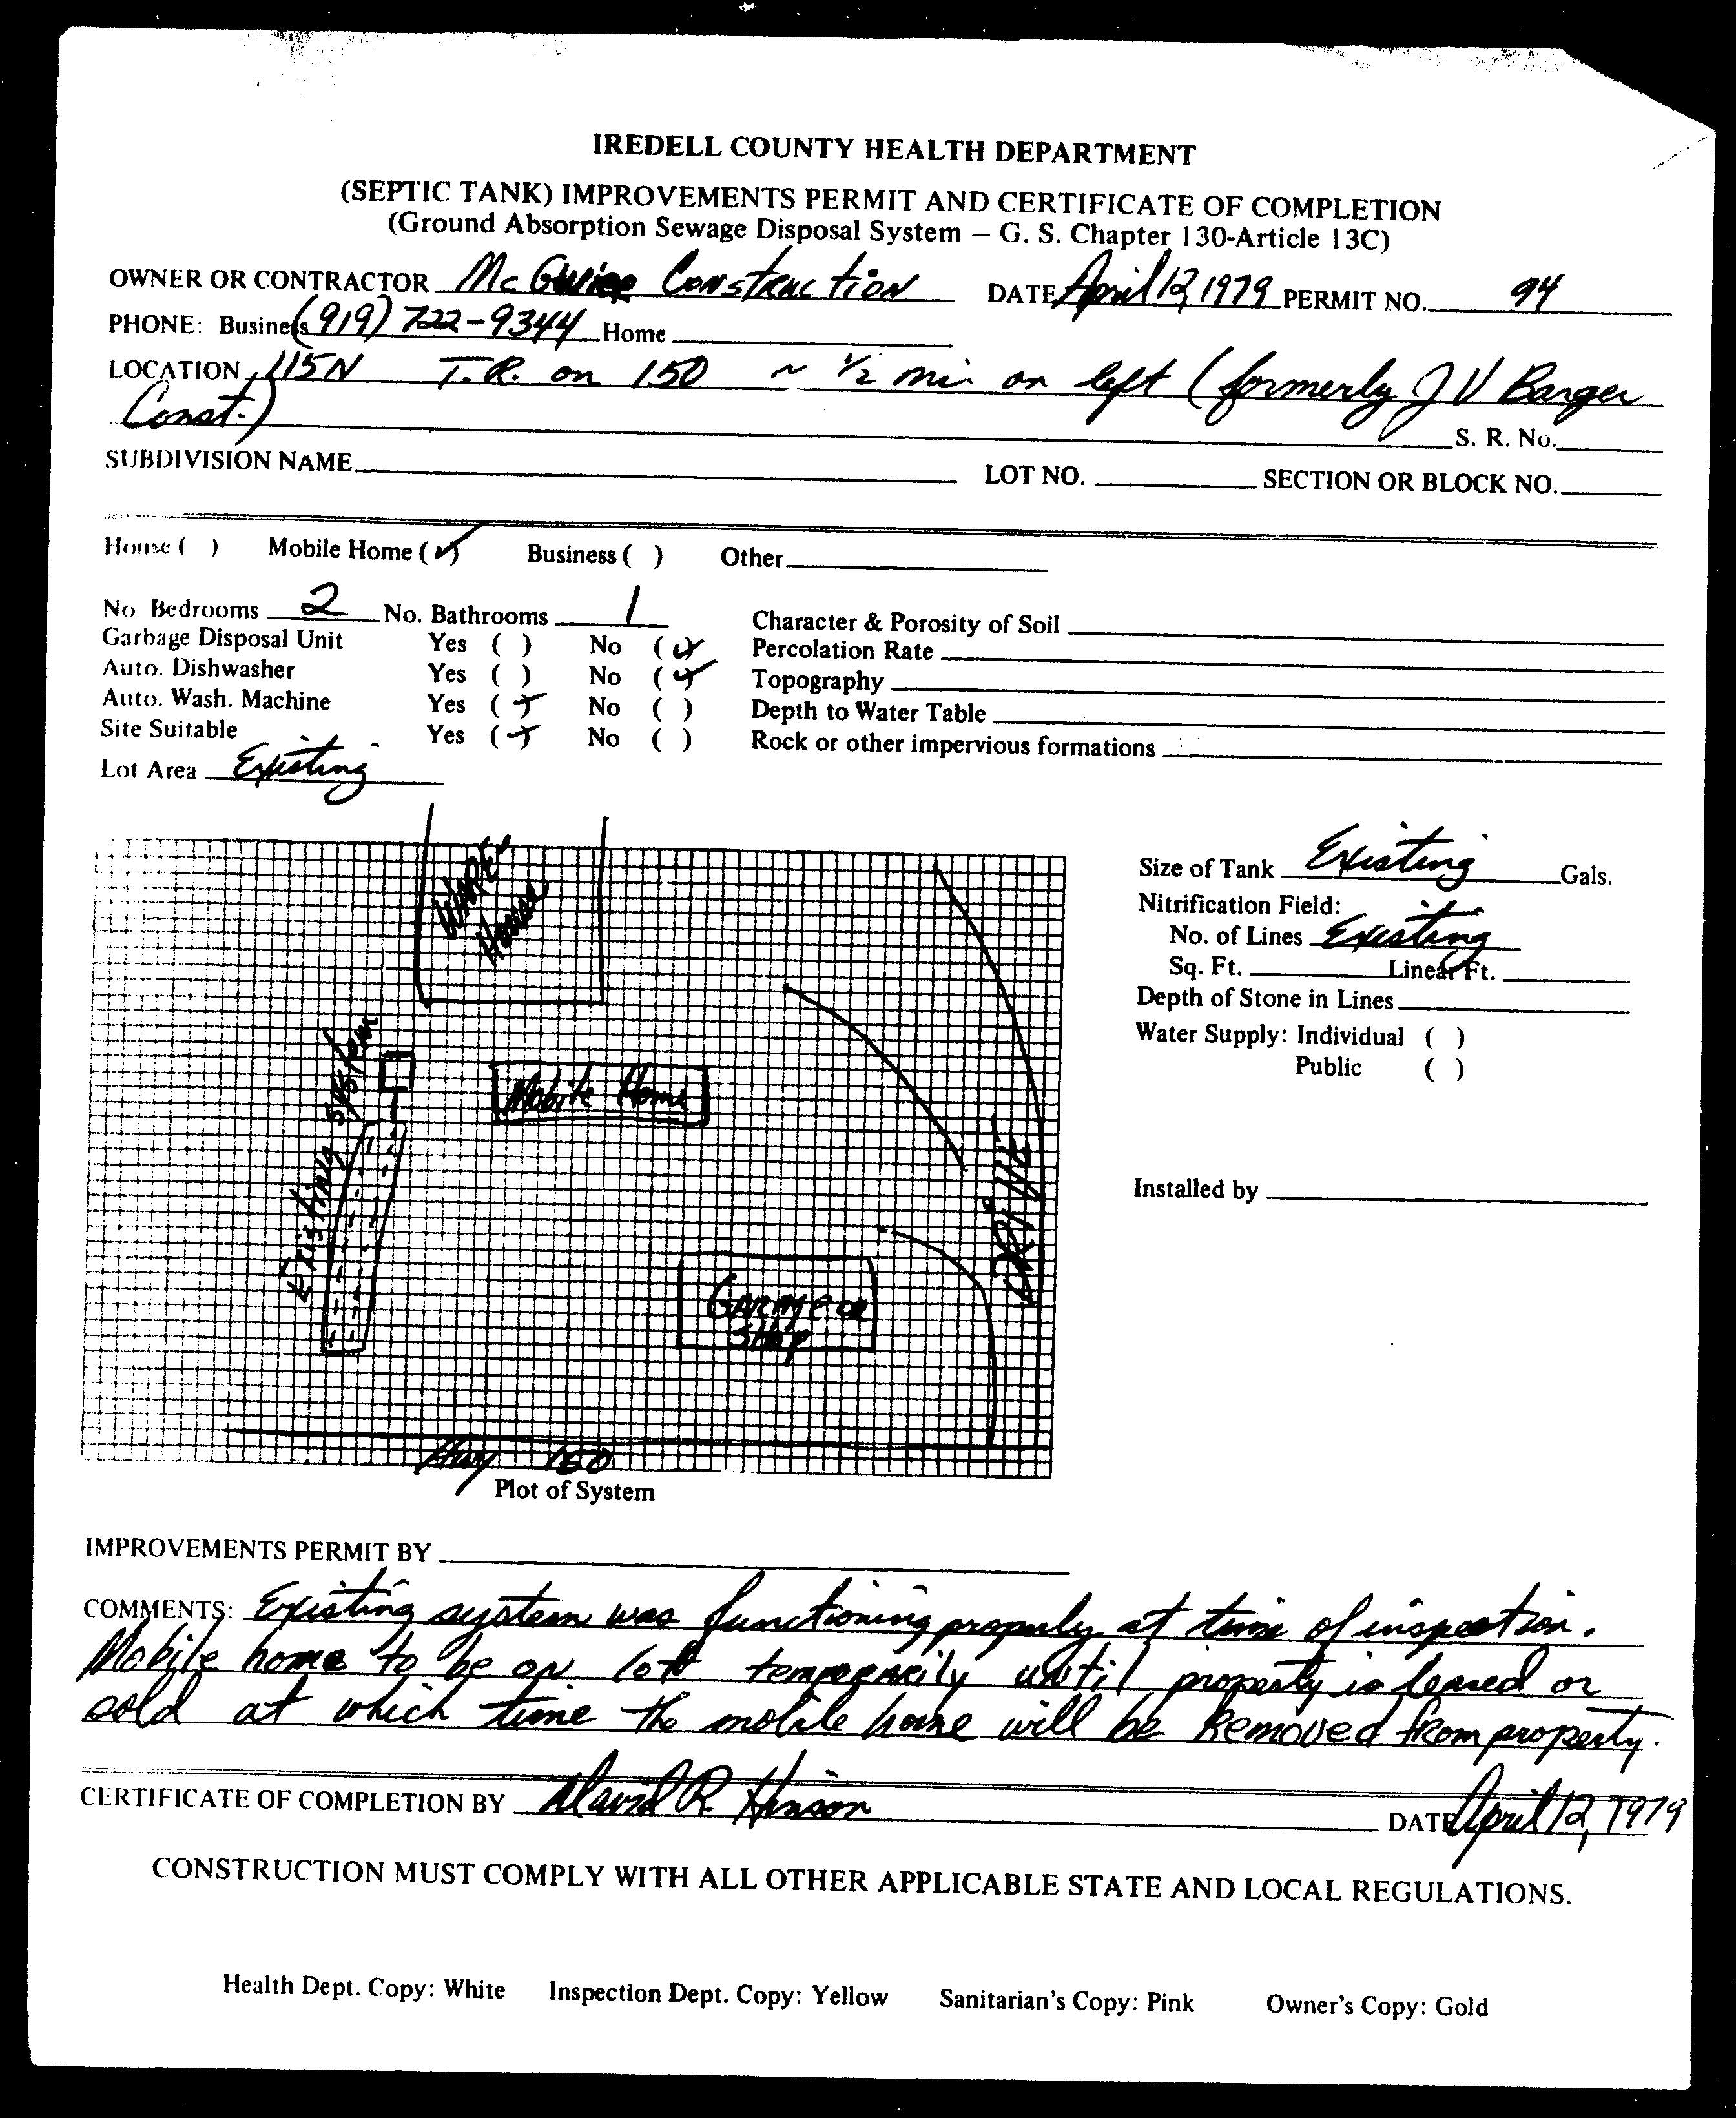 IREDELL COUNTY HEALTH DEPARTMENT
(SEPTIC TANK) IMPROVEMENTS PERMIT AND CERTIFICATE OF COMPLETION
(Ground Absorption Sewage Disposal System – G. S. Chapter 130-Article 13C)
OWNER OR CONTRACTOR McGuire Construction DATE April 12, 1979 PERMIT NO. 94
PHONE: Business (919) 722-9344 Home
LOCATION 115N T.R. on 150 ~ 1/2 mi. on left (formerly J V Barger
Const.) S. R. No.
SUBDIVISION NAME LOT NO. SECTION OR BLOCK NO.
House ( ) Mobile Home (✓) Business ( ) Other
No. Bedrooms 2 No. Bathrooms 1 Character & Porosity of Soil
Garbage Disposal Unit Yes ( ) No (✓) Percolation Rate
Auto. Dishwasher Yes ( ) No (✓) Topography
Auto. Wash. Machine Yes (✓) No ( ) Depth to Water Table
Site Suitable Yes (✓) No ( ) Rock or other impervious formations
Lot Area Existing
WARE-
House
Existing System
Mobile Home
DRIVE
Garage or
Shop
Hwy 150
Plot of System
Size of Tank Existing Gals.
Nitrification Field:
No. of Lines Existing
Sq. Ft. Linear Ft.
Depth of Stone in Lines
Water Supply: Individual ( )
Public ( )
Installed by
IMPROVEMENTS PERMIT BY
COMMENTS: Existing system was functioning properly at time of inspection.
Mobile home to be on lot temporarily until property is leased or
sold at which time the mobile home will be Removed from property.
CERTIFICATE OF COMPLETION BY David R. Hinson DATE April 12, 1979
CONSTRUCTION MUST COMPLY WITH ALL OTHER APPLICABLE STATE AND LOCAL REGULATIONS.
Health Dept. Copy: White Inspection Dept. Copy: Yellow Sanitarian's Copy: Pink Owner's Copy: Gold